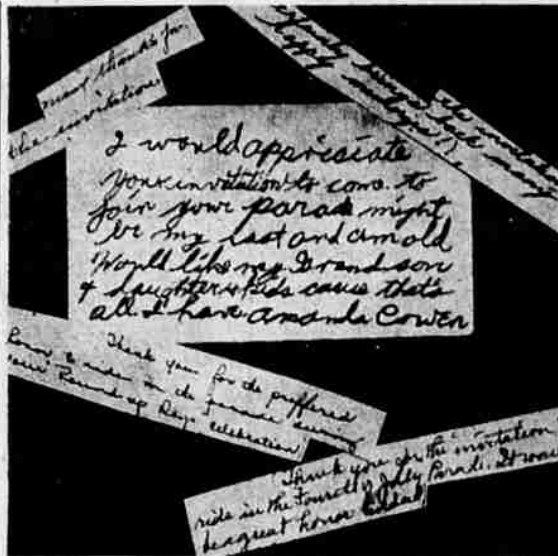 many thanks for
the invitation
brings back many
happy
I would appreciate
your invitation to come to
join your parade might
be my last and am old
Would like my Grandson
& daughter & kids cause that's
all I have Amanda Cowen
Thank you for the proffered
honor to ride in the parade during
your Round-up Days celebration
Thank you for the invitation
ride in the Fourth of July Parade. It would
be a great honor